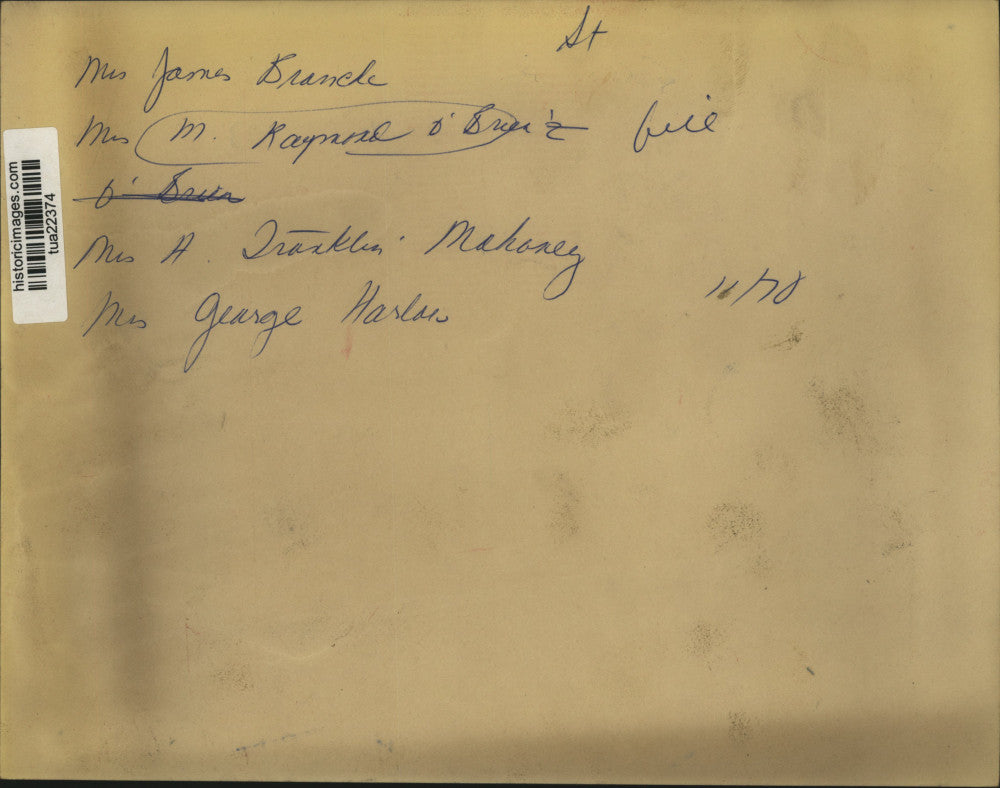 St
Mrs James Branche
Mrs M. Raymond O'Brien file
O'Brien
Mrs A. Franklin Mahoney
Mrs George Harlow
11/70
historicimages.com
tua22374